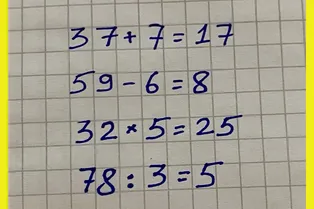 37+7=17
59-6=8
32×5=25
78:3=5